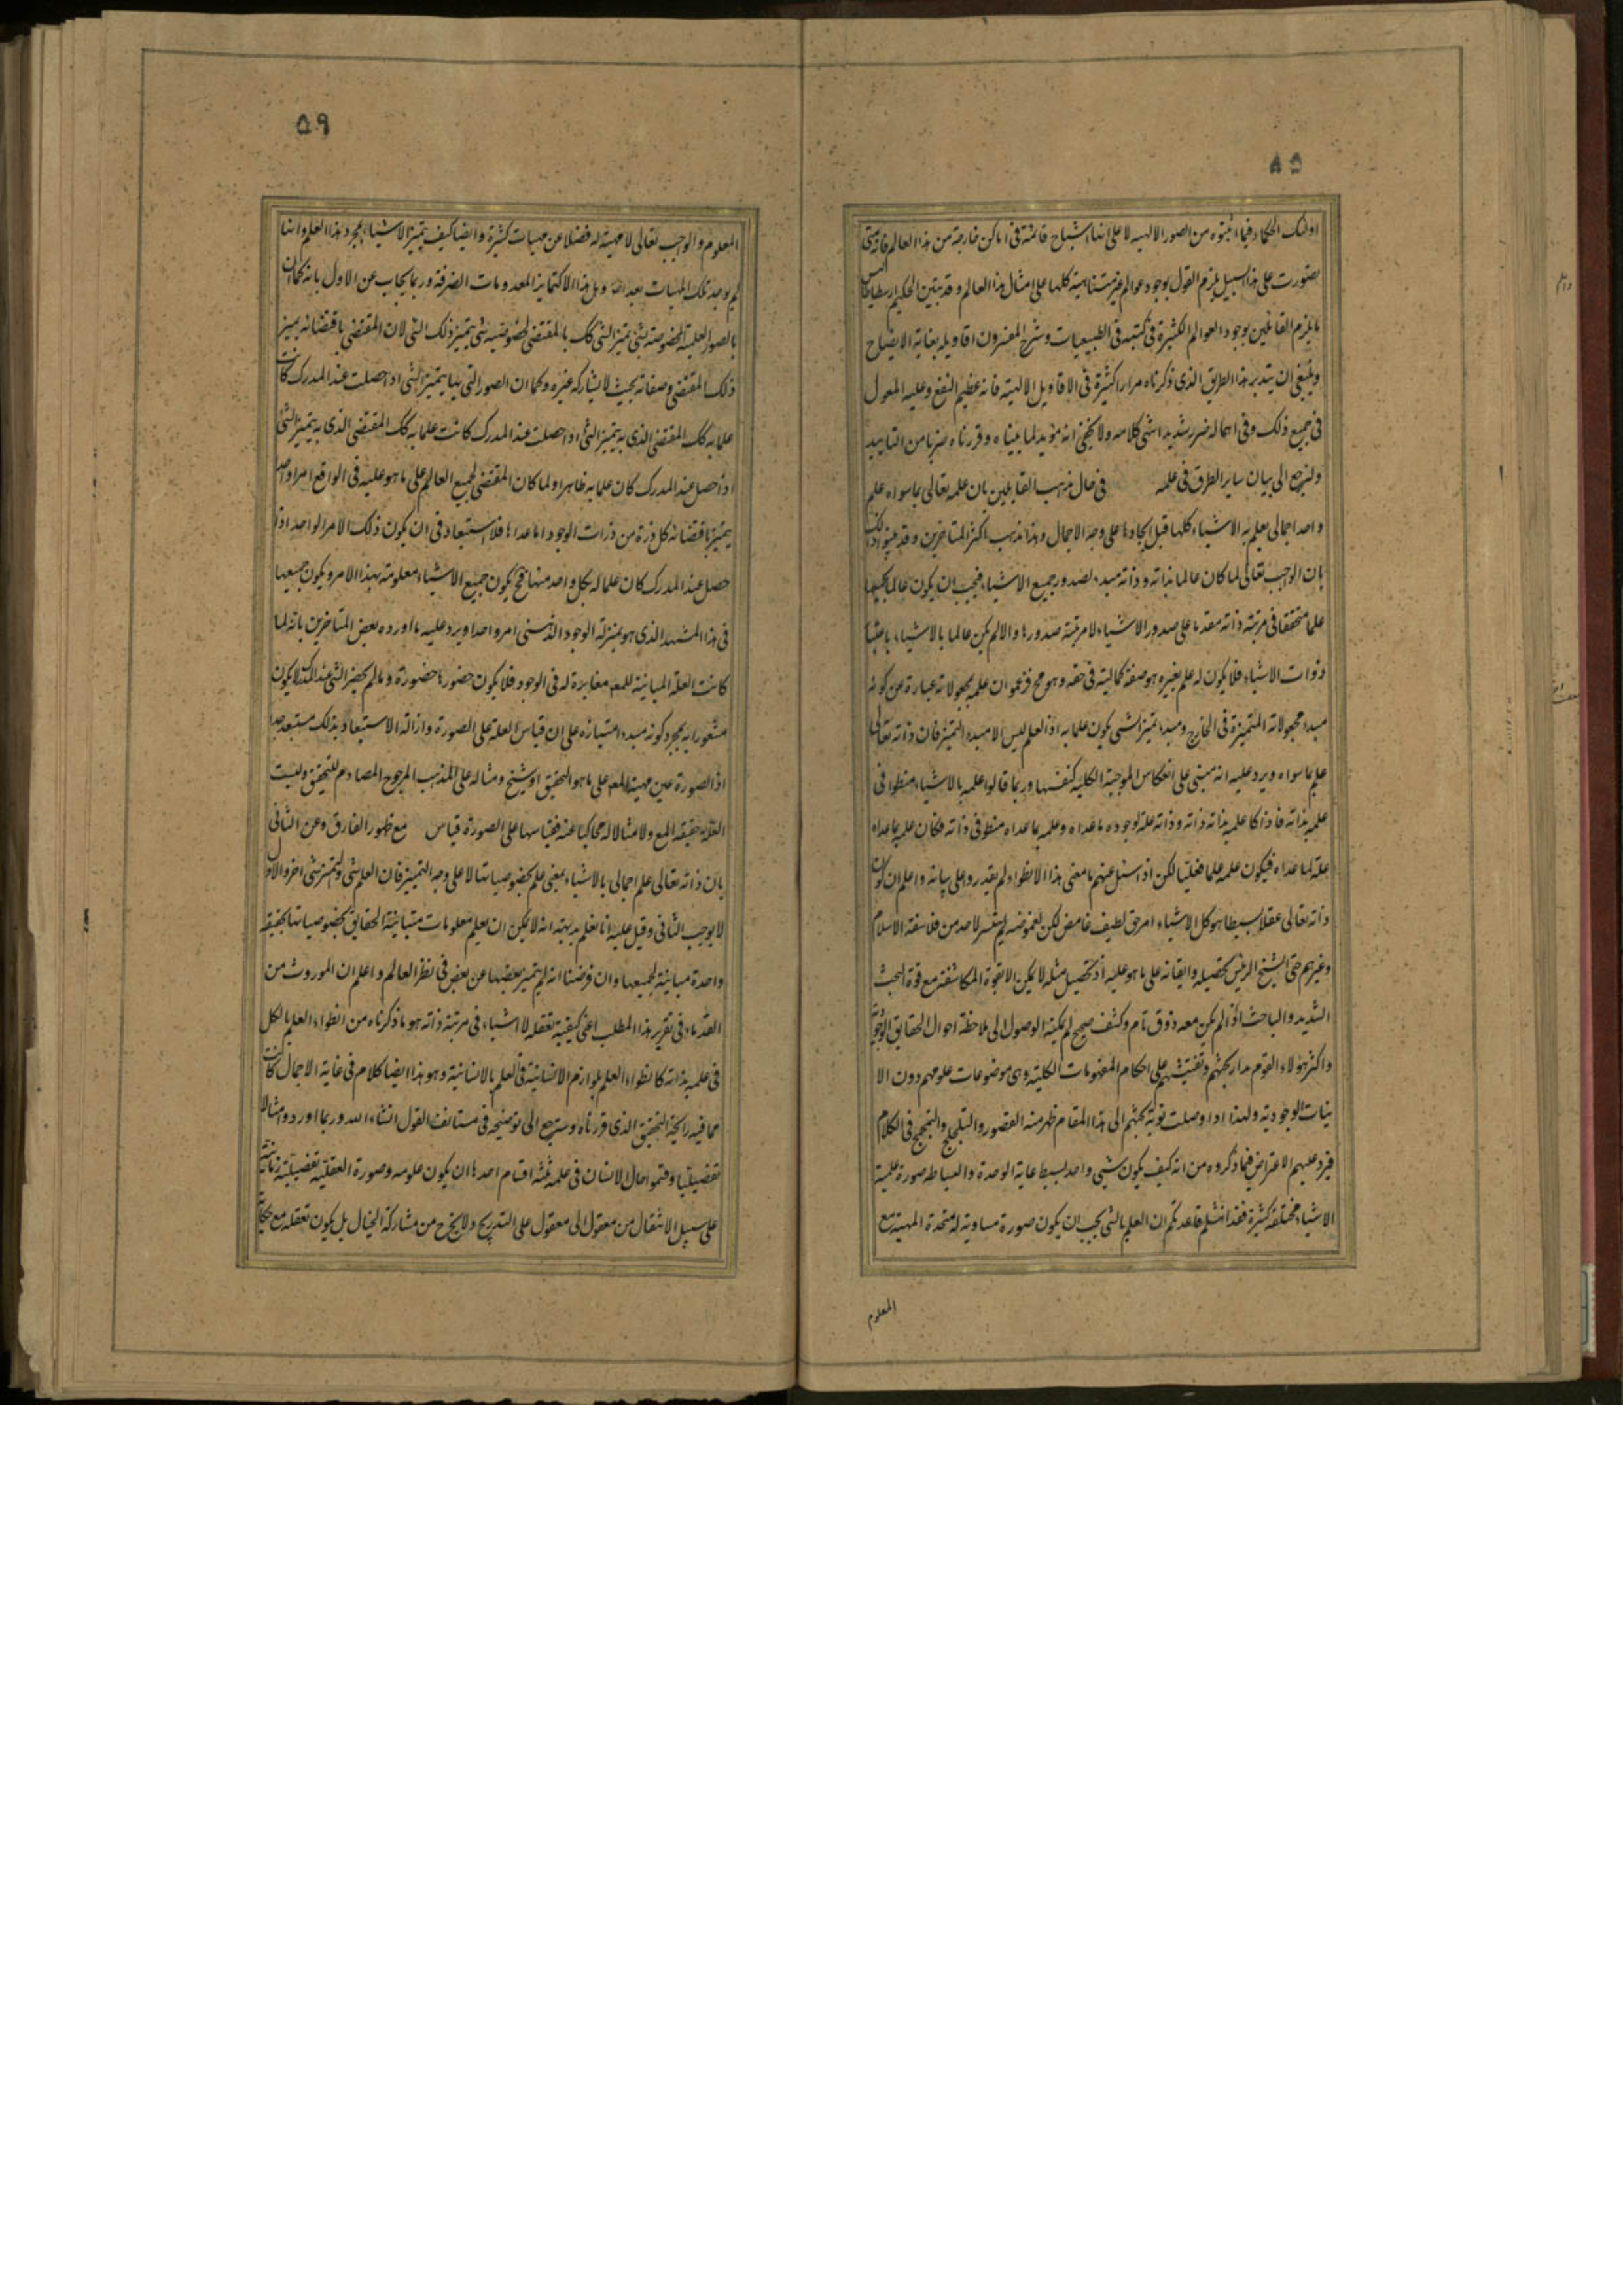 ٥٨
اولئك الحكماء فيما اثبتوه من الصور الالهيه لا على انها اشباح قائمة فى اماكن خارجة من هذا العالم فانه متى
تصورت على هذا السبيل يلزم القول بوجود عوالم غير متناهية كلها على امثال هذا العالم وقد بين الحكيم ارسطاطاليس
ما يلزم القائلين بوجود العوالم الكثيرة فى كتبه فى الطبيعيات وشرح المفسرون اقاويله بغاية الايضاح
وينبغى ان يتدبر هذا الطريق الذى ذكرناه مرارا كثيرة فى الاقاويل الالهية فانه عظيم النفع وعليه المعول
فى جميع ذلك وفى اهماله ضرر شديد انتهى كلامه ولا يخفى انه مؤيد لما بيناه وقررناه ضربا من التاييد
ولنرجع الى بيان ساير الطرق فى علمه فى حال مذهب القايلين بان علمه تعالى بما سواه علم
واحد اجمالى يعلم به الاشياء كلها قبل ايجادها على وجه الاجمال وهذا مذهب اكثر المتاخرين وقد بينوا ذلك
بان الواجب تعالى لما كان عالما بذاته وذاته مبدء لصدور جميع الاشياء فيجب ان يكون عالما بجميعها
علما متحققا فى مرتبة ذاته مقدما على صدور الاشياء لا مرتبة صدورها والا لم يكن عالما بالاشياء باعتبار
ذوات الاشياء فلا يكون له علم بغيره هو صفة كمالية فى حقه وهو مح فزعموا ان علمه بمجعولاته عبارة عن كونه
مبدء مجعولاته المتميزة فى الخارج ومبدء تميز الشى يكون علما به اذ العلم ليس الا مبدء التميز فان ذاته تعالى
علم بما سواه ويرد عليه انه مبنى على انعكاس الموجبة الكلية كنفسها وربما قالوا علمه بالاشياء منطو فى
علمه بذاته فاذا كا علمه بذاته ذاته وذاته علة لوجوده ما عداه وعلمه بما عداه منطو فى ذاته فكان علمه بما عداه
علة لما عداه فيكون علمه علما فعليا لكن اذا سئل عنهم ما معنى هذا الانطواء لم يقدروا على بيانه واعلم ان كون
ذاته تعالى عقلا بسيطا هو كل الاشياء امر حق لطيف غامض لكن لغموضه لم يتيسر لاحد من فلاسفة الاسلام
وغيرهم حتى الشيخ الرئيس تحصيله وايقانه على ما هو عليه اذ تحصيل مثله لا يمكن الا بقوة المكاشفة مع قوة البحث
الشديد والباحث اذا لم يكن معه ذوق تام وكشف صحيح لم يمكنه الوصول الى ملاحظة احوال الحقايق الوجودية
واكثر هؤلاء القوم مدار بحثهم وتفتيشهم على احكام المفهومات الكلية وهى موضوعات علومهم دون الا
نيات الوجودية ولهذا اذا وصلت نوبة بحثهم الى هذا المقام ظهر منه القصور والتلجلج والتمجمج فى الكلام
فيرد عليهم الاعتراض فيما ذكروه من انه كيف يكون شيى واحد بسيط غاية الوحدة والبساطه صورة علمية
الاشياء مختلفة كثيرة فقد انثلم قاعدتكم ان العلم بالشى يجب ان يكون صورة مساوية له متحدة المهية مع
المعلوم
٥٩
المعلوم والواجب تعالى لا مهية له فضلا عن مهيات كثيرة وايضا كيف يتميز الاشياء بمجرد هذا العلم وانها
لم يوجد تلك المهيات بعد اصلا وهل هذا الا كتمايز المعدومات الصرفة وربما يجاب عن الاول بانه كما ان
بالصورة العلمية المخصوصة لشى يتميز الشى كك بالمقتضى لخصوصية شى يتميز ذلك الشى لان المقتضى باقتضائه يميز
ذلك المقتضى وصفاته بحيث لا يشاركه غيره وكما ان الصور التى بها يتميز الشى اذا حصلت عند المدرك كانت
علما به كك المقتضى الذى به يتميز الشى اذا حصلت عند المدرك كانت علما به كك المقتضى الذى به يتميز الشى
اذا حصل عند المدرك كان علما به ظاهرا ولما كان المقتضى لجميع العالم على ما هو عليه فى الواقع امرا واحدا
يتميز باقتضائه كل ذرة من ذرات الوجود عما عداها فلا استبعاد فى ان يكون ذلك الامر الواحد اذا
حصل عند المدرك كان علما له بكل واحد منها فح يكون جميع الاشياء معلومة بهذا الامر ويكون جميعها
فى هذا المشهد الذى هو بمنزلة الوجود الذهنى امرا واحدا ويرد عليه ما اورده بعض المتاخرين بانه لما
كانت العلة المباينة للمعه مغايرة له فى الوجود فلا يكون حضورها حضوره وما لم يحضر الشى عند المدرك لا يكون
مشعورا به بمجرد كونه مبدء امتيازه على ان قياس العلة على الصورة وازالة الاستبعاد بذلك مستبعد جدا
اذ الصورة عين مهية المعه على ما هو التحقيق او شبح ومثال له على المذهب المرجوح المصادم للتحقيق وليست
العلة حقيقة المع ولا مثالا له محاكيا عنه فقياسها على الصورة قياس مع ظهور الفارق وعن الثانى
بان ذاته تعالى علم اجمالى بالاشياء بمعنى علم بخصوصياتها لا على وجه التمييز فان العلم شى والتميز شى اخر والاول
لا يوجب الثانى وقيل عليه انا نعلم بديهة انه لا يمكن ان يعلم معلومات متباينة الحقايق بخصوصياتها بحقيقة
واحدة مباينة لجميعها وان فرضنا انه لم يتميز بعضها عن بعض فى نظر العالم واعلم ان الموروث من
القدماء فى تقرير هذا المطلب اعنى كيفية تعقله لاشياء فى مرتبة ذاته هو ما ذكرناه من انطواء العلم بالكل
فى علمه بذاته كانطواء العلم بلوازم الانسانية فى العلم بالانسانية وهو هذا ايضا كلام فى غاية الاجمال كانت
مما فيه رايحة التحقيق الذى قررناه وسنرجع الى توضيحه فى مستانف القول انشاء الله وربما اوردوا مثالا
تفصيليا وقسموا حال الانسان فى علمه ثلثة اقسام احدها ان يكون علومه وصورة العقلية تفصيلية زمانية
على سبيل الانتقال من معقول الى معقول على التدريج ولا يخرج من مشاركة الخيال بل يكون تعقله مع حكاية